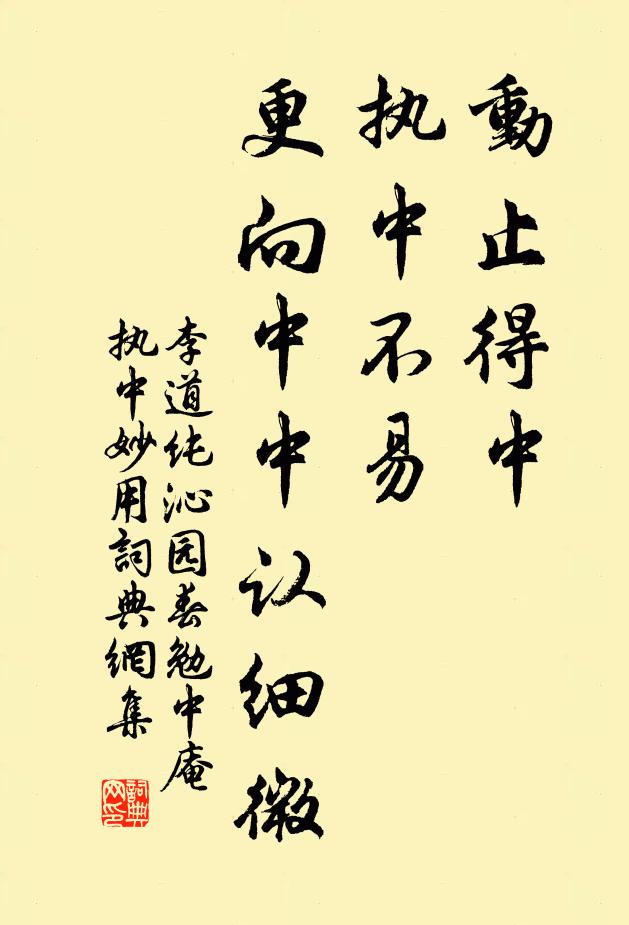 動止得中
执中不易
更向中中认细微
李道纯沁园春勉中庵
执中妙用詞典網集
詞典网印